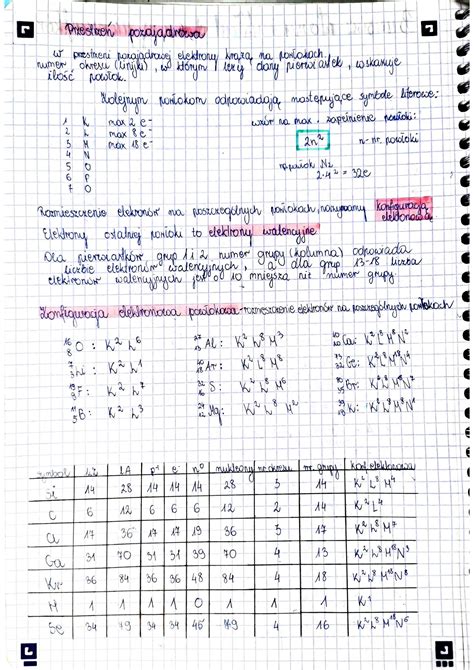 Przestrzeń pozajądrowa
W przestrzeni pozajądrowej elektrony krążą na powłokach,
numer okresu (linijki), w którym leży dany pierwiastek, wskazuje
ilość powłok.
Kolejnym powłokom odpowiadają następujące symbole literowe:
1 K max 2 e⁻
2 L max 8 e⁻
3 M max 18 e⁻
4 N
5 O
6 P
7 Q
wzór na max. zapełnienie powłoki:
2n² n - nr. powłoki
np. powłok N
2·4² = 32e
Rozmieszczenie elektronów na poszczególnych powłokach, nazywamy konfiguracją
elektronową
Elektrony ostatniej powłoki to elektrony walencyjne
Dla pierwiastków grup 1 i 2 numer grupy (kolumna) odpowiada
liczbie elektronów walencyjnych, a dla grup 13-18 liczba
elektronów walencyjnych jest o 10 mniejsza niż numer grupy
Konfiguracja elektronowa powłokowa - rozmieszczenie elektronów na poszczególnych powłokach
¹⁶₈O: K² L⁶ ²⁷₁₃Al: K² L⁸ M³ ⁴⁰₂₀Ca: K² L⁸ M⁸ N²
⁷₃Li: K² L¹ ⁴⁰₁₈Ar: K² L⁸ M⁸ Ge: K² L⁸ M¹⁸ N⁴
¹⁹₉F: K² L⁷ ³²₁₆S: K² L⁸ M⁶ Br: K² L⁸ M¹⁸ N⁷
¹¹₅B: K² L³ ²⁴₁₂Mg: K² L⁸ M² ³⁹₁₉K: K² L⁸ M⁸ N¹
symbol LA p⁺ e⁻ n⁰ nukleony nr okresu nr. grupy konf. elektronowa
Si 14 28 14 14 14 28 3 14 K² L⁸ M⁴
C 6 12 6 6 6 12 2 14 K² L⁴
Cl 17 36 17 17 19 36 3 17 K² L⁸ M⁷
Ga 31 70 31 31 39 70 4 13 K² L⁸ M¹⁸ N³
Kr 36 84 36 36 48 84 4 18 K² L⁸ M¹⁸ N⁸
H 1 1 1 1 0 1 1 1 K¹
Se 34 79 34 34 45 79 4 16 K² L⁸ M¹⁸ N⁶